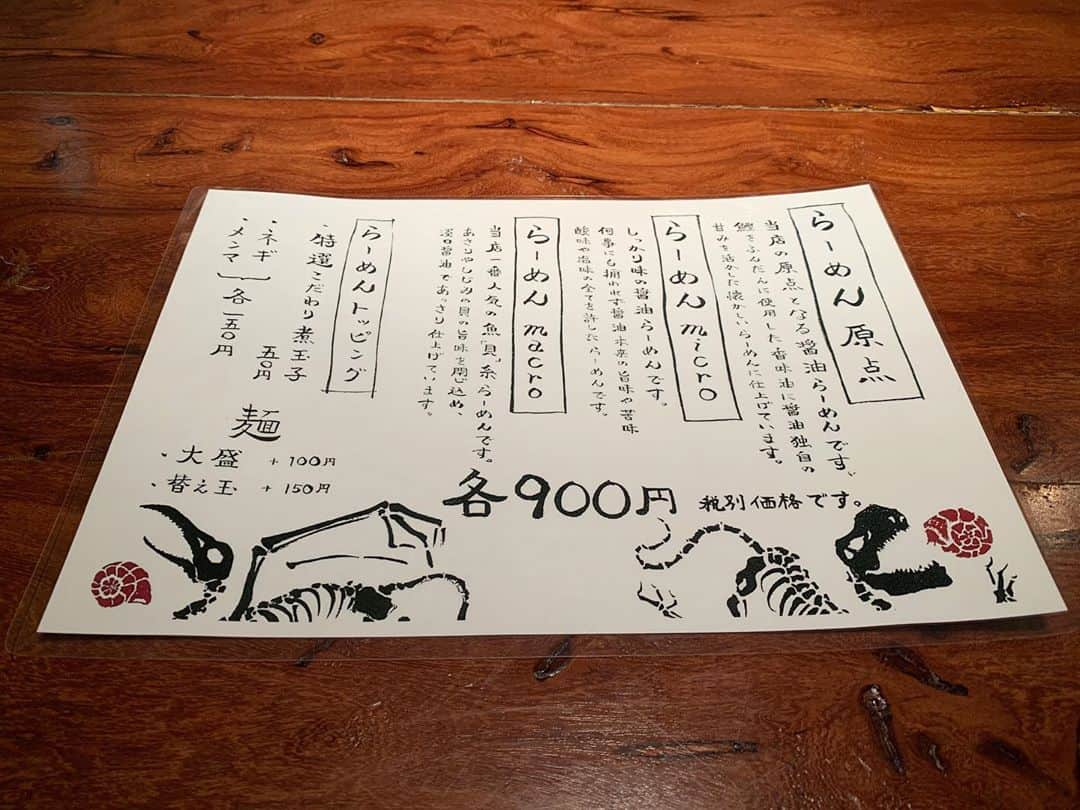 らーめん 原点
当店の原点となる醤油らーめんです。
鰹をふんだんに使用した香味油に醤油独自の
甘みを活かした懐かしいらーめんに仕上げています。
らーめん micro
しっかり味の醤油らーめんです。
何事にも捕われず醤油本来の旨味や苦味
酸味や塩味の全てを許したらーめんです。
らーめん macro
当店一番人気の魚「貝」系らーめんです。
あさりやしじみの貝の旨味を閉じ込め、
淡口醤油であっさり仕上げています。
各900円 税別価格です。
らーめんトッピング
・特選こだわり煮玉子 五〇円
・ネギ
・メンマ
各一五〇円
麺
・大盛 +100円
・替え玉 +150円